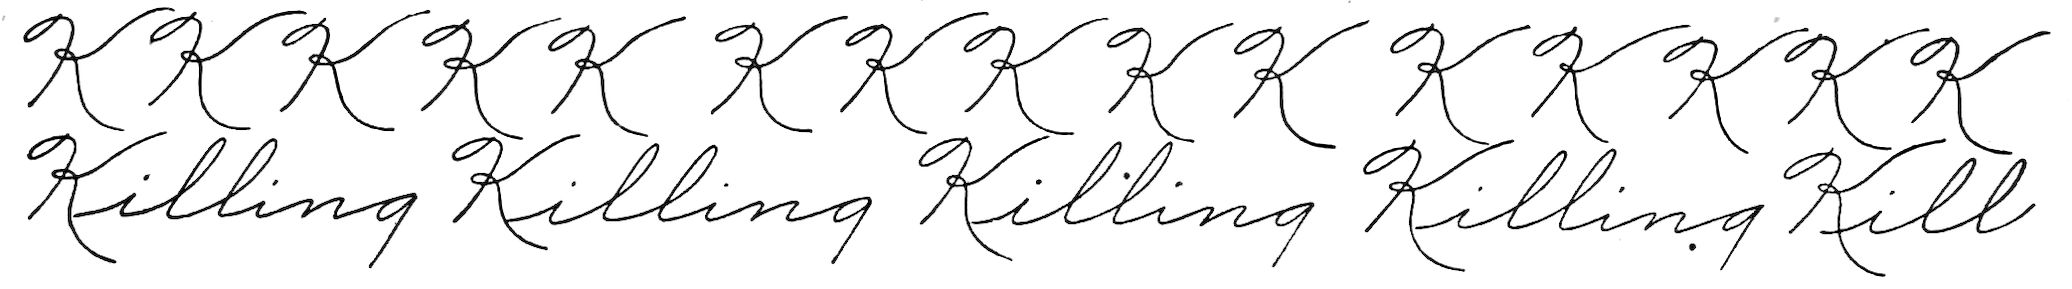 K K K K K K K K K K K K K K K
Killing Killing Killing Killing Kill